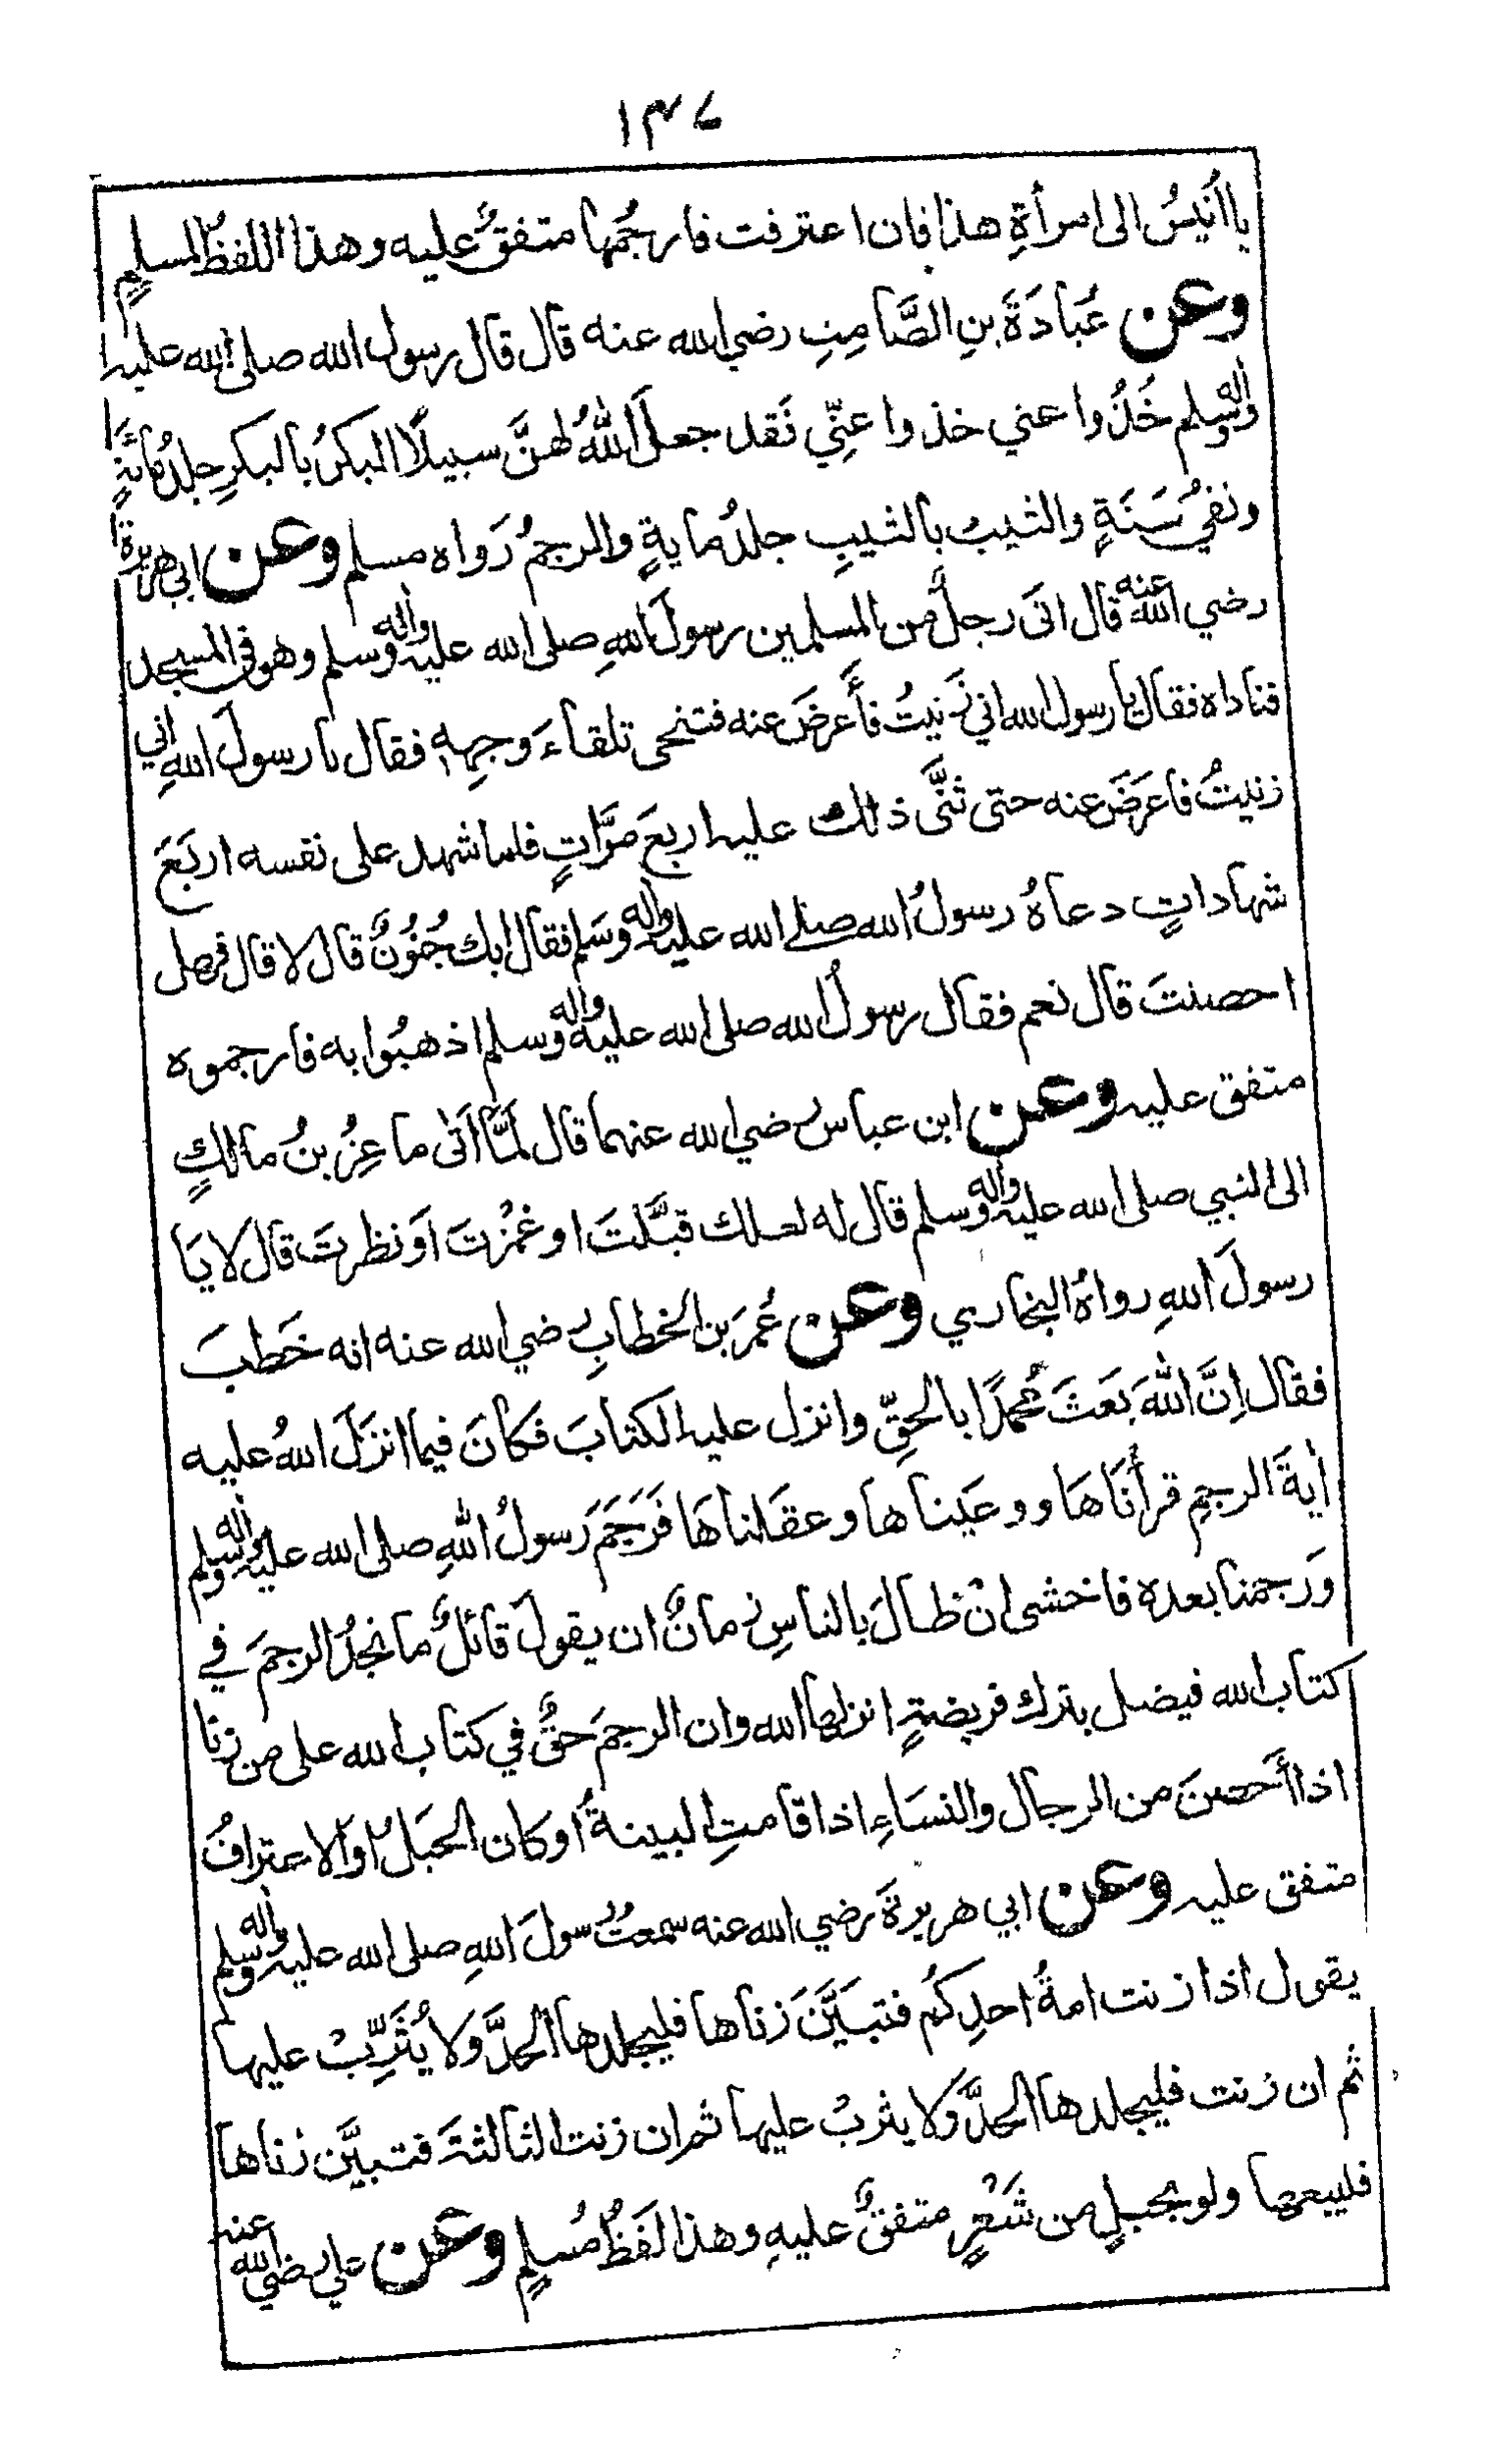 ١٣٧
يا أُنَيسُ الى امرأةِ هذا فان اعترفت فارجُمها متفقٌ عليه وهذا اللفظُ لمسلمٍ
وعن عُبادَةَ بنِ الصَّامِتِ رضي الله عنه قال قال رسول الله صلى الله عليه
وآله وسلم خُذُوا عني خذوا عنِّي فَقد جعلَ اللهُ لهنَّ سبيلًا البكرُ بالبكرِ جلدُ مائةٍ
ونفيُ سَنَةٍ والثيب بالثيبِ جلدُ مايةٍ والرجمُ رَواه مسلم وعن ابي هريرة
رضي الله عنه قال اتَى رجلٌ من المسلمين رسولَ اللهِ صلى الله عليه وآله وسلم وهو في المسجد
فناداه فقال يا رسول الله اني زَنيتُ فأَعرضَ عنه فتنحى تلقاءَ وجهِهِ فقال يا رسولَ اللهِ اني
زنيتُ فاعرَضَ عنه حتى ثَنَّى ذلك عليه اربعَ مَرَّاتٍ فلما شهد على نفسه اربَعَ
شهاداتٍ دعاهُ رسولُ الله صلى الله عليه وآله وسَلم فقال ابك جُنُونٌ قال لا قال فهل
احصنتَ قال نعم فقال رسولُ الله صلى الله عليه وآله وسلم اذهبُوا به فارجموه
متفق عليه وعن ابن عباس رضي الله عنهما قال لَمَّا اَتى ماعِزُ بنُ مالكٍ
الى النبي صلى الله عليه وآله وسلم قال له لعلك قبَّلتَ او غمزْتَ اَو نظرتَ قال لا يَا
رسولَ اللهِ رواهُ البخاري وعن عُمرَ بن الخطابِ رضي الله عنه انه خَطبَ
فقال اِنَّ اللهَ بَعَثَ مُحمدًا بالحقِّ وانزل عليه الكتابَ فكانَ فيما انزَلَ اللهُ عليه
اٰيةَ الرجمِ قرأْنَاهَا ووعَيناها وعقَلناهَا فَرَجَمَ رَسولُ اللهِ صلى الله عليه وآله وسلم
وَرجمنا بعده فاخشى انْ طالَ بالناسِ زمانٌ ان يقولَ قائلٌ ما نجدُ الرجمَ في
كتاب الله فيضل بترك فريضةٍ انزلها الله وان الرجمَ حقٌّ في كتاب الله على من زنا
اذا أَحصنَ من الرجال والنسَاءِ اذا قامتِ البينةُ أو كان الحبَل او الاعترافُ
متفق عليه وعن ابي هريرةَ رضي الله عنه سمعتُ رسولَ اللهِ صلى الله عليه وآله وسلم
يقول اذا زنت امةُ احدِكُم فتبيَّنَ زناها فليجلدها الحدَّ ولا يُثَرِّبْ عليها
ثم ان زنت فليجلدها الحدَّ ولا يثربْ عليها ثم ان زنت الثالثةَ فتبيَّن زناها
فليبعها ولو بحبلٍ من شَعْرٍ متفقٌ عليهِ وهذا لفَظُ مُسلمٍ وعن علي رضي الله عنه